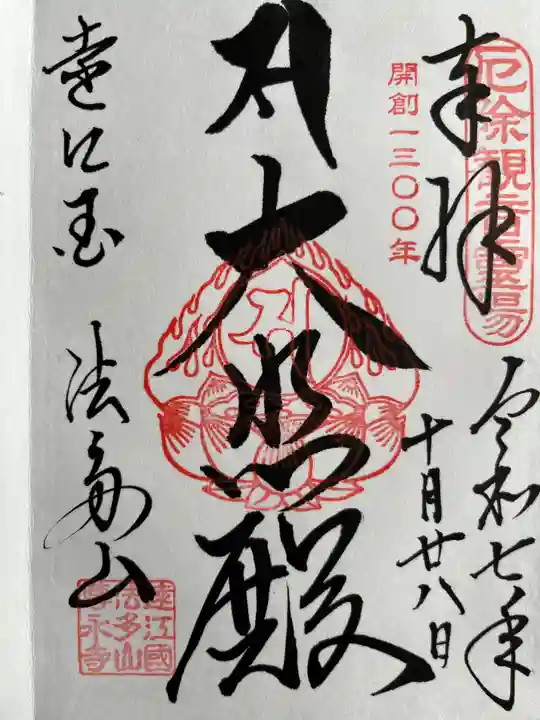 厄除観音霊場
奉拝
開創一三〇〇年
令和七年
十月廿八日
大悲殿
遠江国 法多山
遠江國
法多山
尊永寺